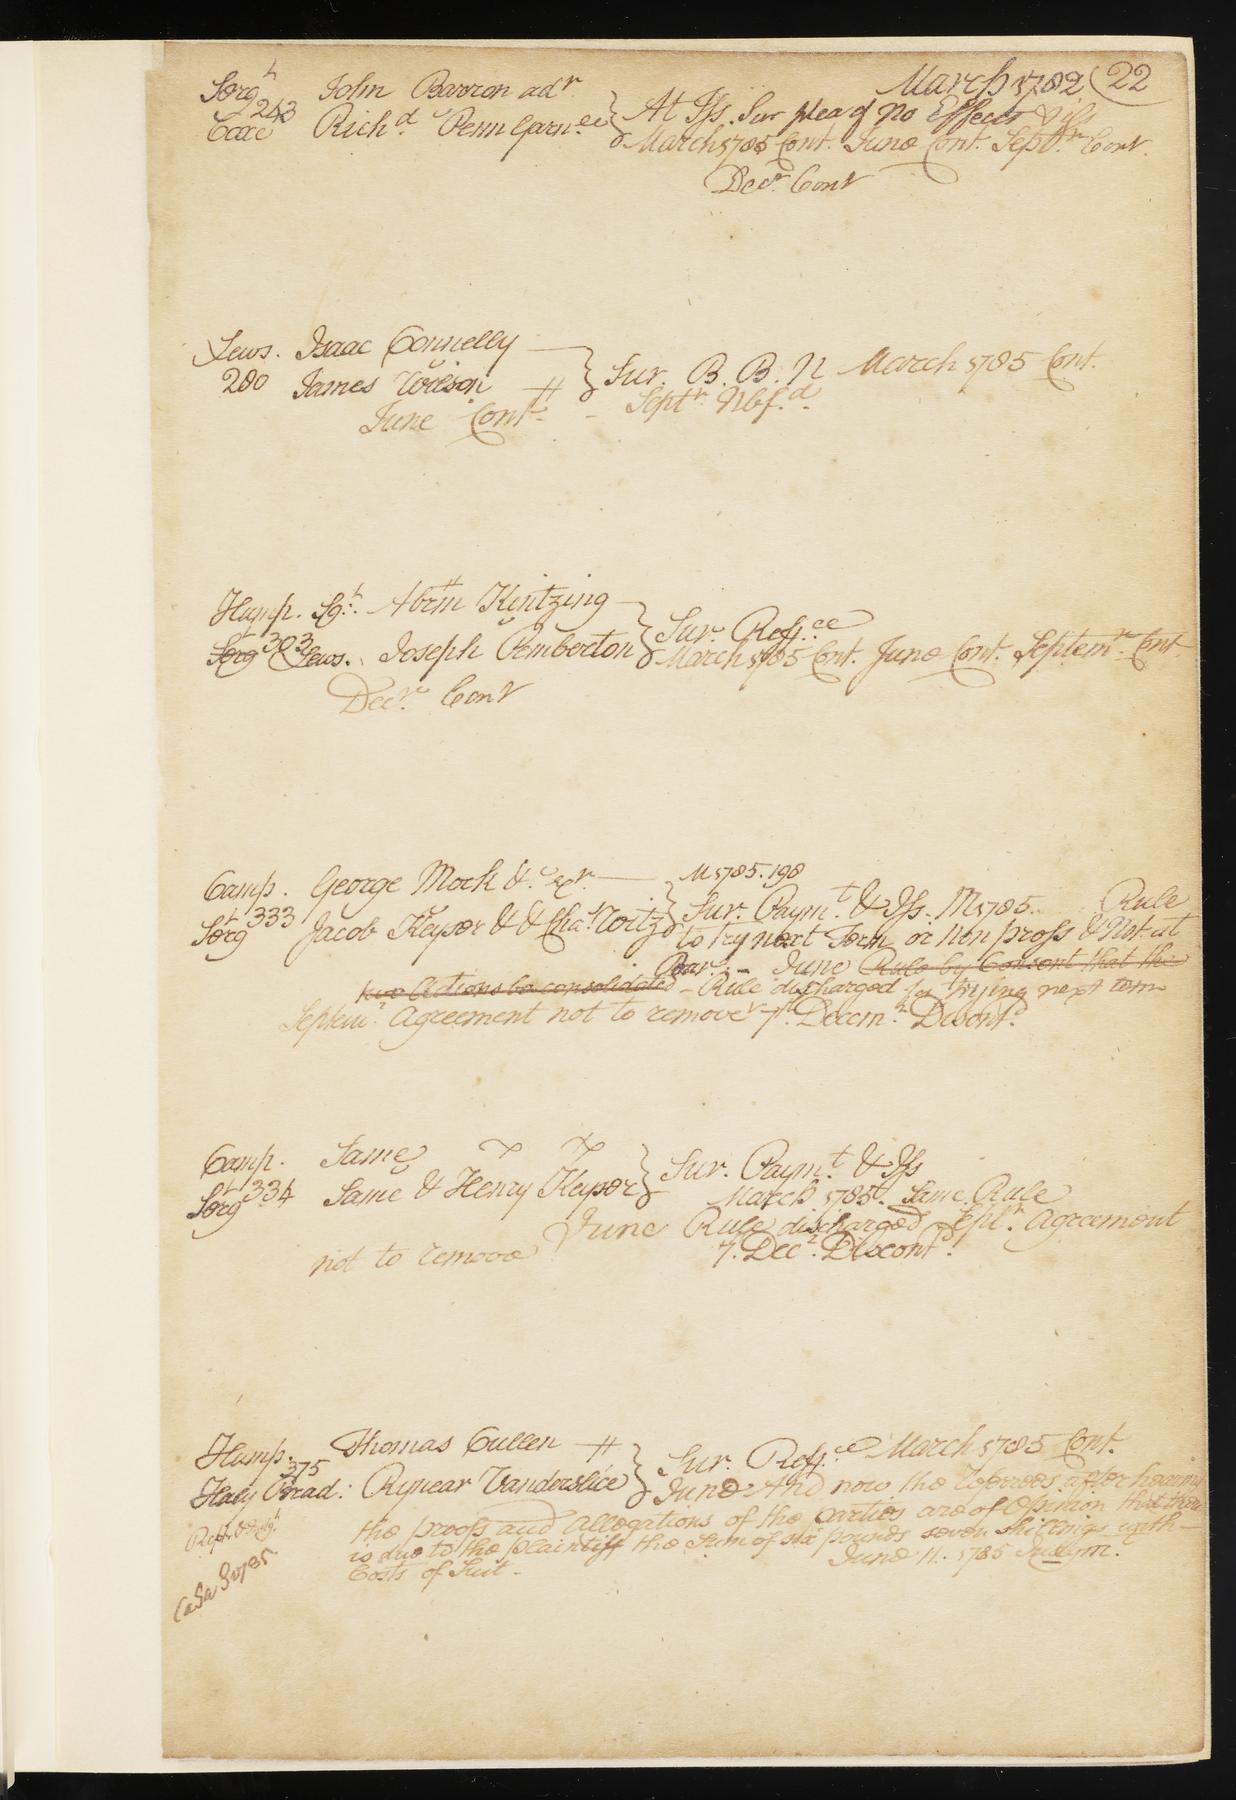 March 1782 (22
Serg.t John Barron ad.r
243
Coxe Rich.d Penn Garn.ee } At Iss. Sur plea of No Effects & iss
March 1785 Cont. June Cont. Sept.r Cont.
Dec.r Cont
Lews. Isaac Connelly
280 James Wilson } Sur. B. B. N March 1785 Cont.
June Cont. - Sept.r Nbf.d
Hamp. Sg.t Abrm Kintzing
Serg.t 303 Lews. Joseph Pemberton } Sur. Reff.ee
March 1785 Cont. June Cont. Septem.r Cont
Dec.r Cont
M 1785.198
Camp. George Mock &.c ex.r
Serg.t 333 Jacob Keyser & & Cha.s Woitz } Sur. Paym.t & Iss. M 1785. Rule
to try next Term or Non pross & Not at
Bar. - June Rule by Consent that the
two Actions be consolidated - Rule discharged for trying next term
Septem.r Agreement not to remove 7th Decem.r Discont.d
Camp. Same
Serg.t 334 Same & Henry Keyser } Sur. Paym.t & Iss
March 1785. Same Rule
June Rule discharged Sept.r Agreement
not to remove 7. Dec.r Discont.d
Hamp. Thomas Cullen
375
Haly Brad: Rynear Vanderslice } Sur. Reff.ee March 1785 Cont.
June And now the Referees after hearing
the proofs and Allegations of the parties are of Opinion that there
is due to the plaintiff the Sum of six pounds seven shillings with
Costs of Suit - June 11. 1785 Judgm.t
CaSa S 1785.